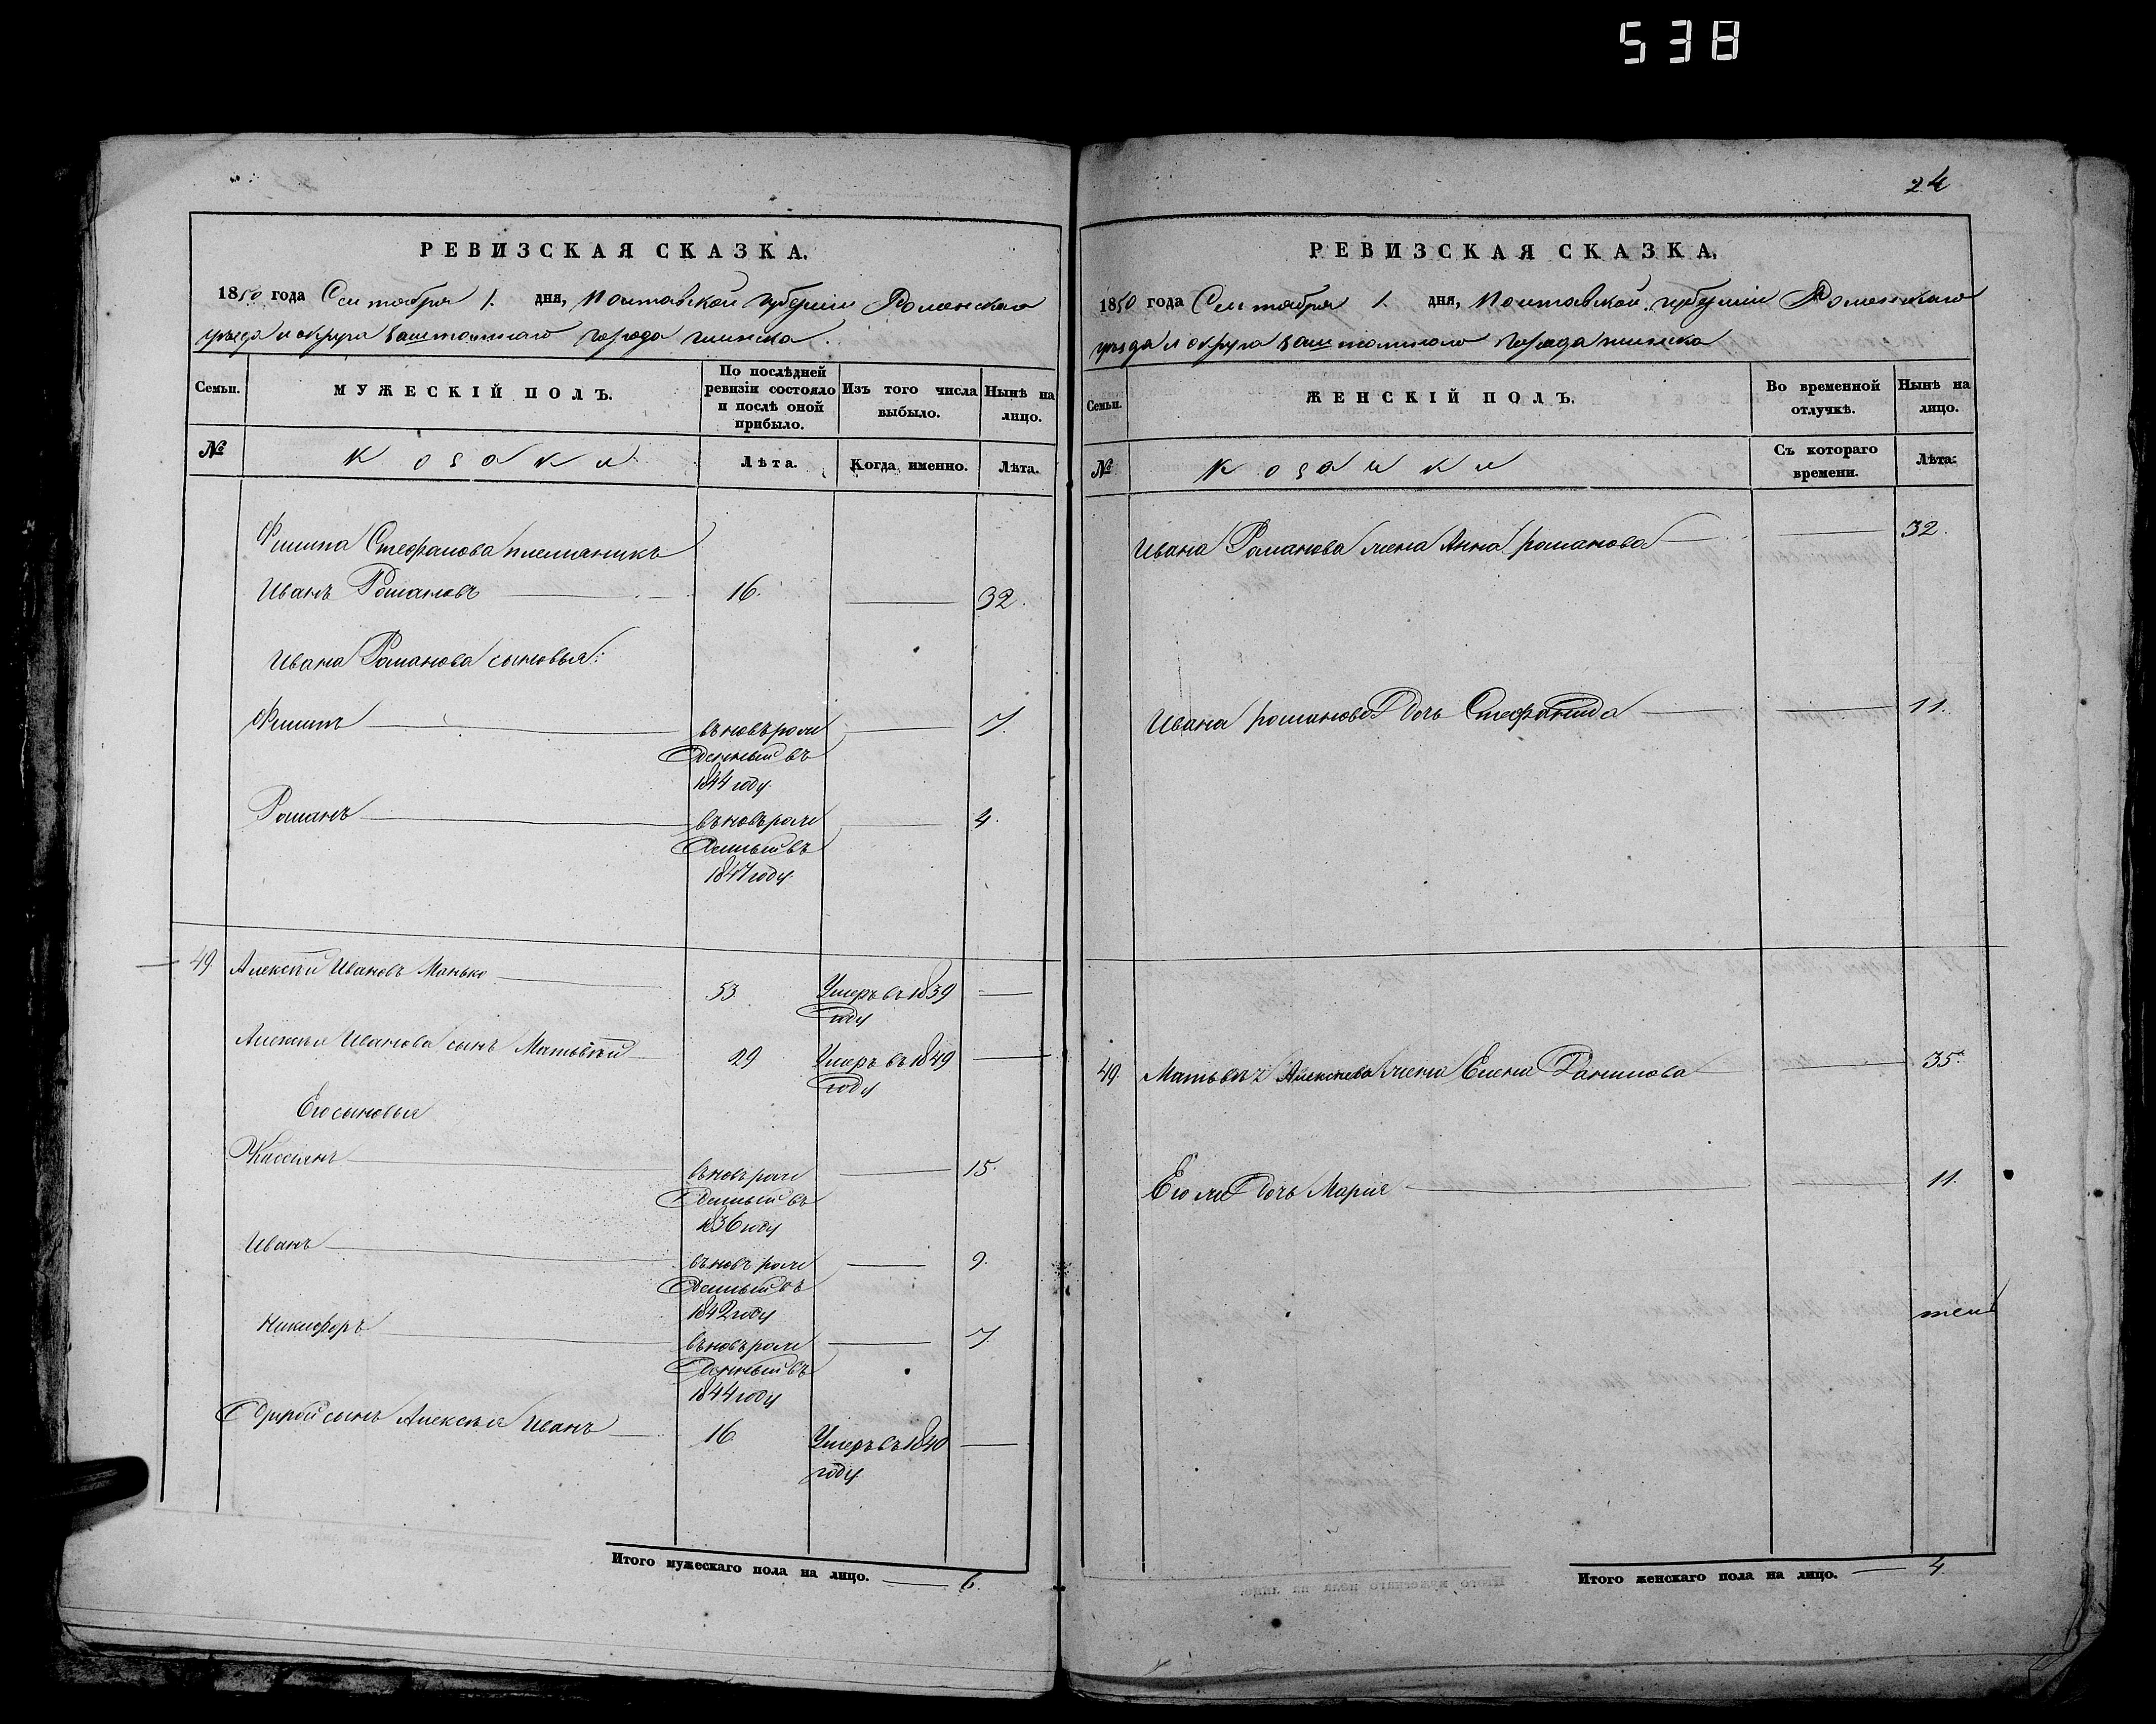 538
РЕВИЗСКАЯ СКАЗКА.
1850 года Сентября 1. дня, Полтавской губернiи Роменскаго
уѣзда и округа заштатнаго города Глинска.
Семьи.
МУЖЕСКІЙ ПОЛЪ.
По послѣдней
ревизіи состояло
и послѣ оной
прибыло.
Изъ того числа
выбыло.
Нынѣ на
лицо.
№
Козаки
Лѣта.
Когда именно.
Лѣта.
Филипа Стефанова племяникъ
Иванъ Романовъ 16. 32.
Ивана Романова сыновья:
Филипъ вѣновь рож 7.
денный въ
1844 году.
Романъ вѣновь рож 4.
денный въ
1847 году.
49 Алексѣй Ивановъ Манько 53 Умеръ въ 1839
году
Алексѣя Иванова сынъ Матвѣй 29 Умеръ въ 1849
году
Его сыновья
Кассіянъ вѣновь рож 15.
денный въ
1836 году
Иванъ вѣновь рож 9.
денный въ
1842 году
Никифоръ вѣновь рож 7.
денный въ
1844 году
Другой сынъ Алексѣя Иванъ 16 Умеръ въ 1840
году
Итого мужескаго пола на лицо. 6.
24
РЕВИЗСКАЯ СКАЗКА.
1850 года Сентября 1. дня, Полтавской губернiи Роменскаго
уѣзда и округа заштатнаго города Глинска
Семьи.
ЖЕНСКІЙ ПОЛЪ.
Во временной
отлучкѣ.
Нынѣ на
лицо.
№
Козачки
Съ котораго
времени.
Лѣта.
Ивана Романова жена Анна Романова 32.
Ивана Романова дочь Стефанида 11.
49 Матвѣя Алексѣева жена Елена Данилова 35.
Его же дочь Марія 11.
Итого женскаго пола на лицо. 4